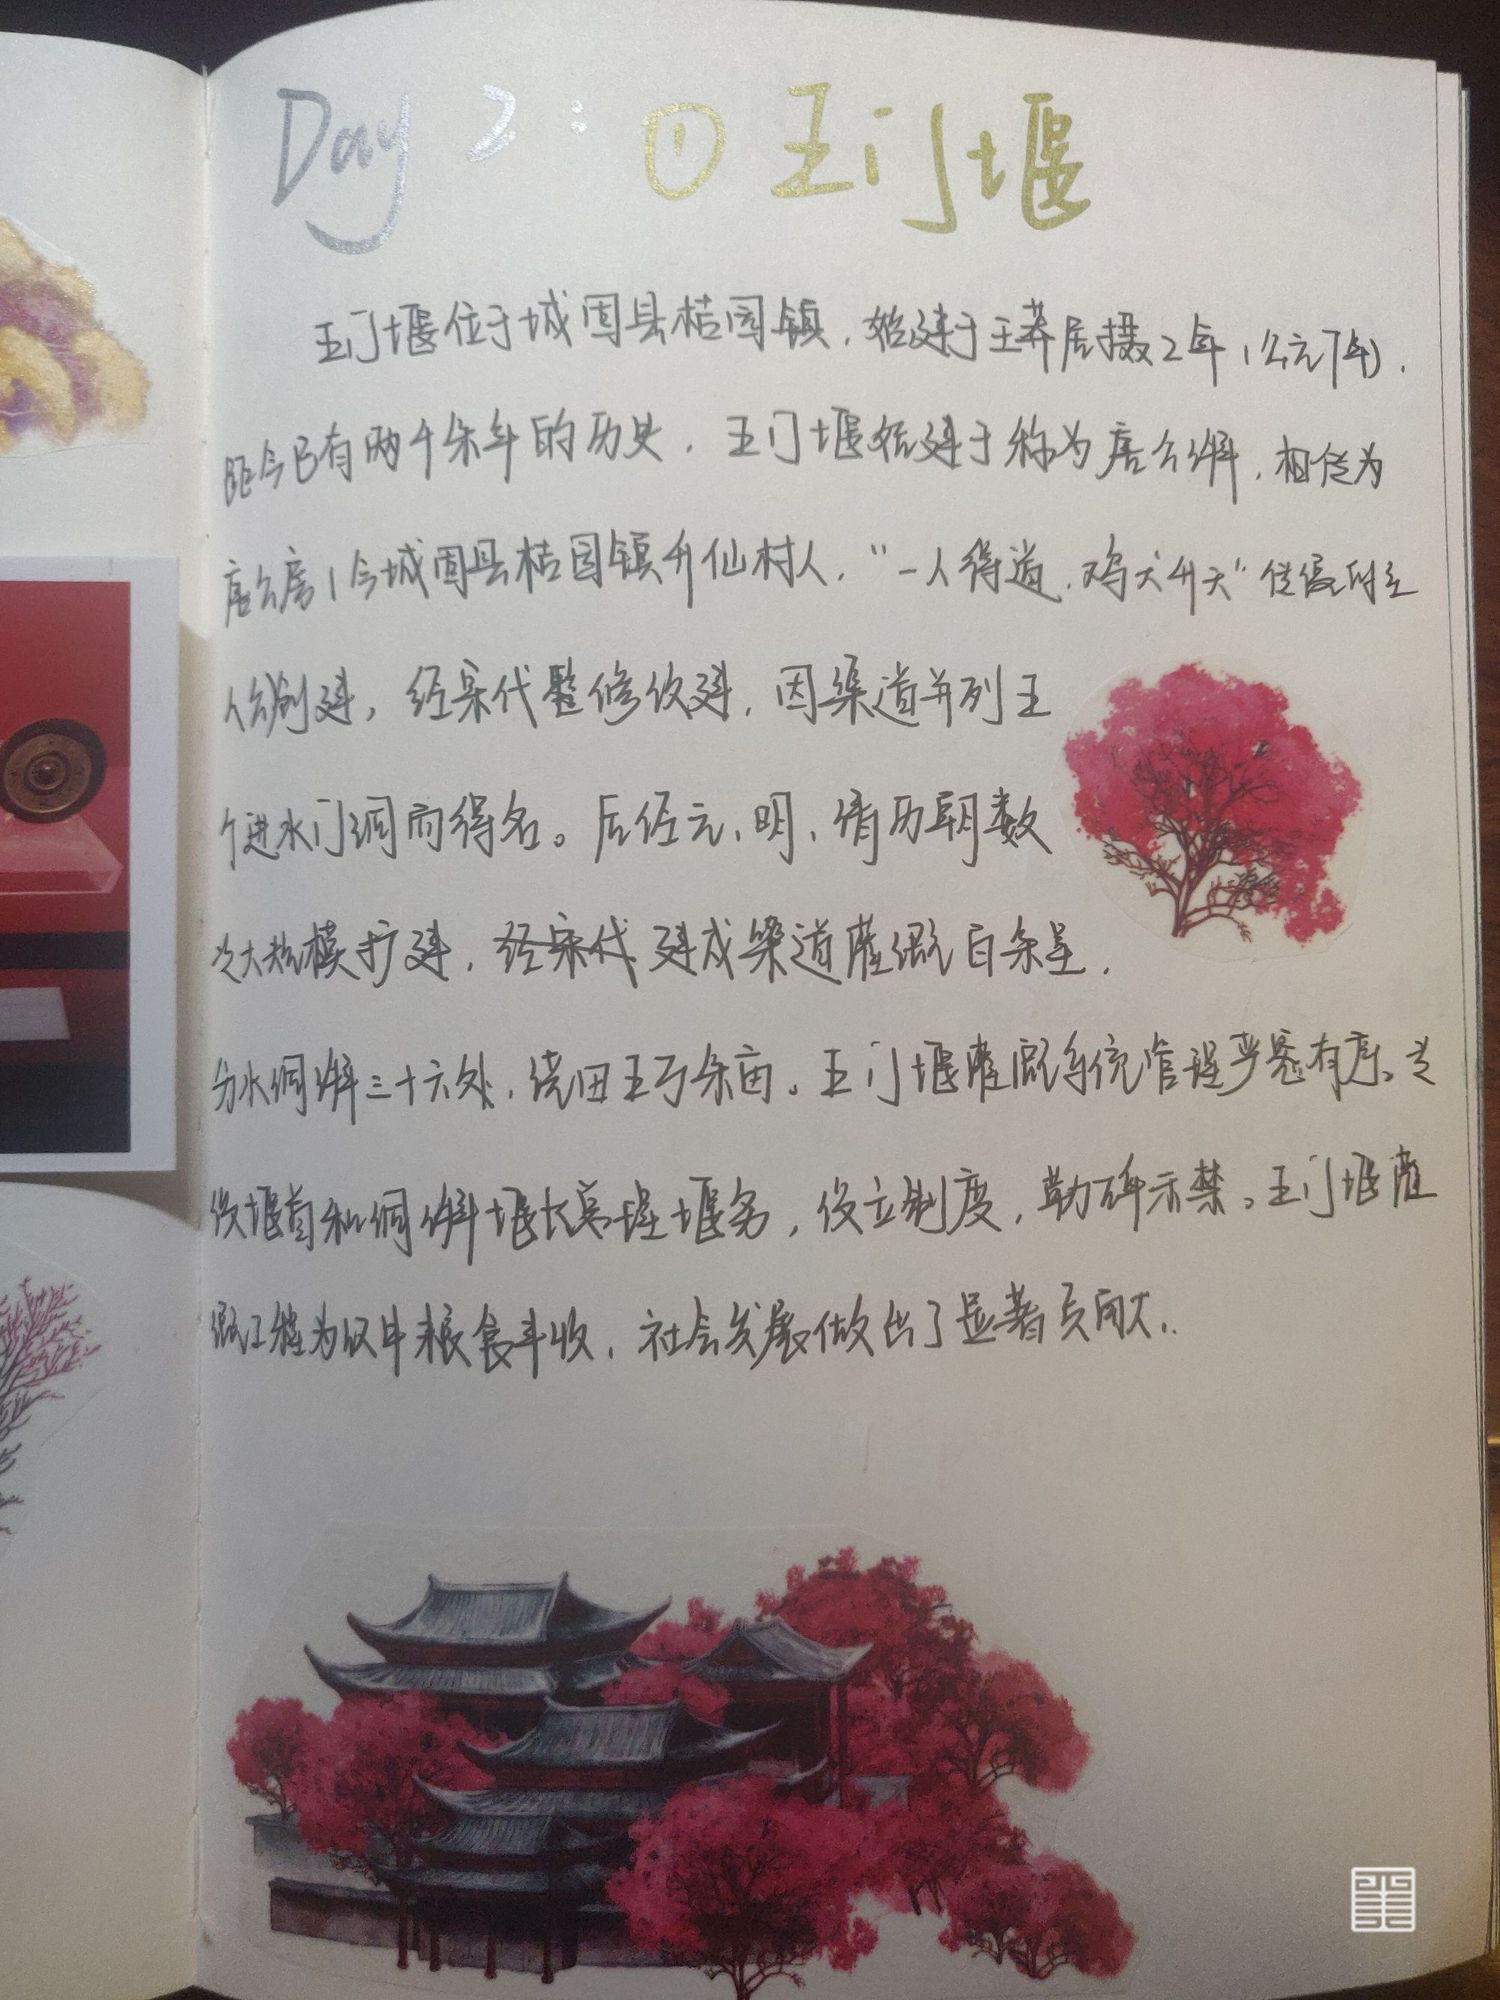 Day 2: ① 五门堰
五门堰位于城固县桔园镇，始建于王莽居摄2年（公元7年），
距今已有两千余年的历史，五门堰始建于称为唐公湃，相传为
唐公房（今城固县桔园镇升仙村人，“一人得道，鸡犬升天”传说的主
人公）创建，经宋代整修改建，因渠道并列五
个进水门洞而得名。后经元、明、清历朝数
次大规模扩建，经宋代 建成渠道灌溉百余里，
分水洞湃三十六处，浇田五万余亩。五门堰灌溉系统管理严密有序。
设堰首和洞湃堰长管理堰务，设立制度，勒碑示禁。五门堰灌
溉工程为汉中粮食丰收，社会发展做出了显著贡献。